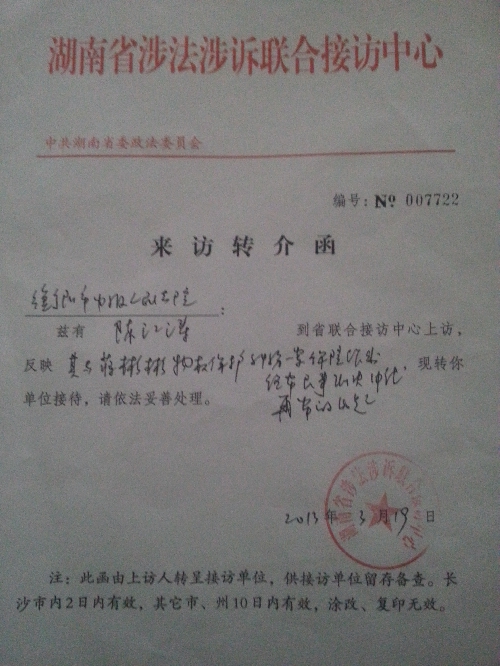 湖南省涉法涉诉联合接访中心
中共湖南省委政法委员会
编号：№ 007722
来访转介函
市中级人民法院：
兹有 陈 到省联合接访中心上访，
反映 其与蒋彬彬物权保护纠纷一案 现转你
单位接待，请依法妥善处理。
湖南省涉法涉诉联合接访中心
2013年3月19日
注：此函由上访人转呈接访单位，供接访单位留存备查。长
沙市内2日内有效，其它市、州10日内有效，涂改、复印无效。